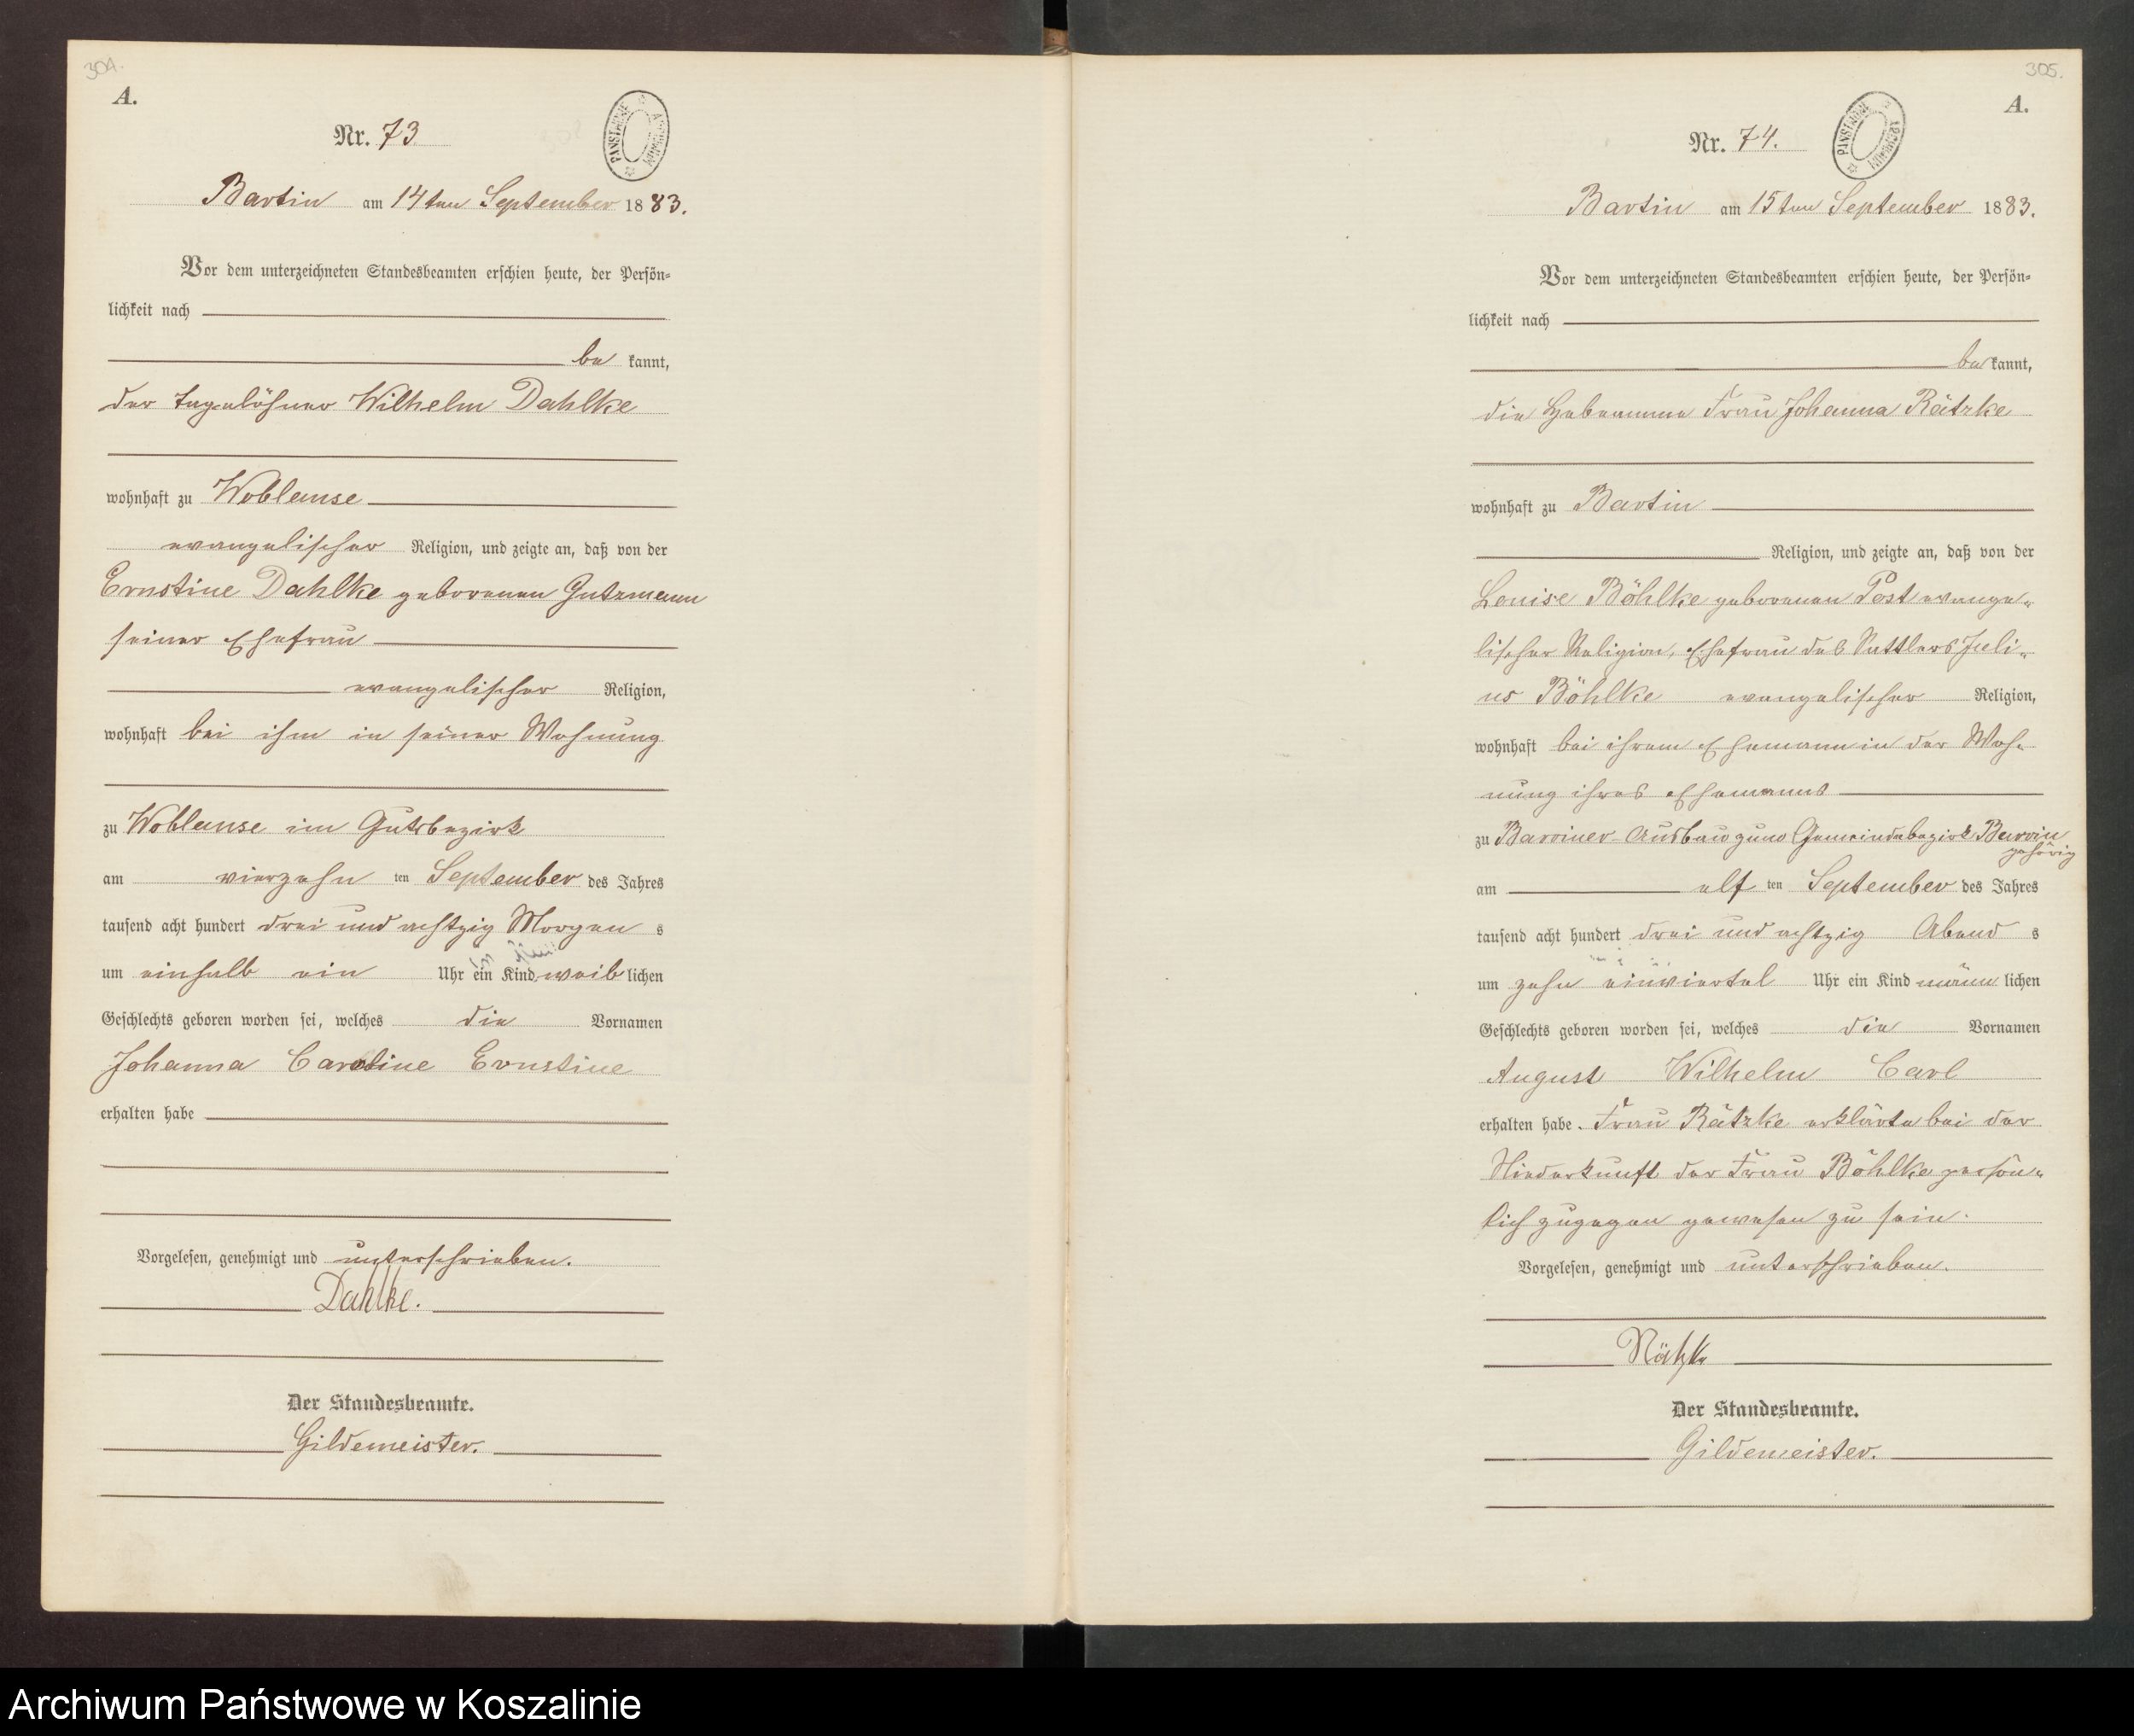 304.
A.
Nr. 73
PAŃSTWOWE ARCHIWUM
Bartin am 14ten September 1883.
Vor dem unterzeichneten Standesbeamten erschien heute, der Persön-
lichkeit nach
be kannt,
der Tagelöhner Wilhelm Dahlke
wohnhaft zu Woblanse
evangelischer Religion, und zeigte an, daß von der
Ernstine Dahlke geborenen Gutzmann
seiner Ehefrau
evangelischer Religion,
wohnhaft bei ihm in seiner Wohnung
zu Woblanse im Gutsbezirk
am vierzehn ten September des Jahres
tausend acht hundert drei und achtzig Morgen s
um einhalb ein Uhr ein Kind weib lichen
Geschlechts geboren worden sei, welches die Vornamen
Johanna Caroline Ernstine
erhalten habe
Vorgelesen, genehmigt und unterschrieben.
Dahlke.
Der Standesbeamte.
Gildemeister.
305.
A.
Nr. 74.
PAŃSTWOWE ARCHIWUM
Bartin am 15ten September 1883.
Vor dem unterzeichneten Standesbeamten erschien heute, der Persön-
lichkeit nach
be kannt,
die Hebeamme Frau Johanna Rätzke
wohnhaft zu Bartin
Religion, und zeigte an, daß von der
Louise Böhlke geborenen Post evange-
lischer Religion, Ehefrau des Sattlers Juli-
us Böhlke evangelischer Religion,
wohnhaft bei ihrem Ehemann in der Woh-
nung ihres Ehemanns
zu Barviner-Ausbau zum Gemeindebezirk Barvin
gehörig
am elf ten September des Jahres
tausend acht hundert drei und achtzig Abend s
um zehn einviertel Uhr ein Kind männ lichen
Geschlechts geboren worden sei, welches die Vornamen
August Wilhelm Carl
erhalten habe. Frau Rätzke erklärte bei der
Niederkunft der Frau Böhlke persön-
lich zugegen gewesen zu sein.
Vorgelesen, genehmigt und unterschrieben.
Rätzke
Der Standesbeamte.
Gildemeister.
Archiwum Państwowe w Koszalinie